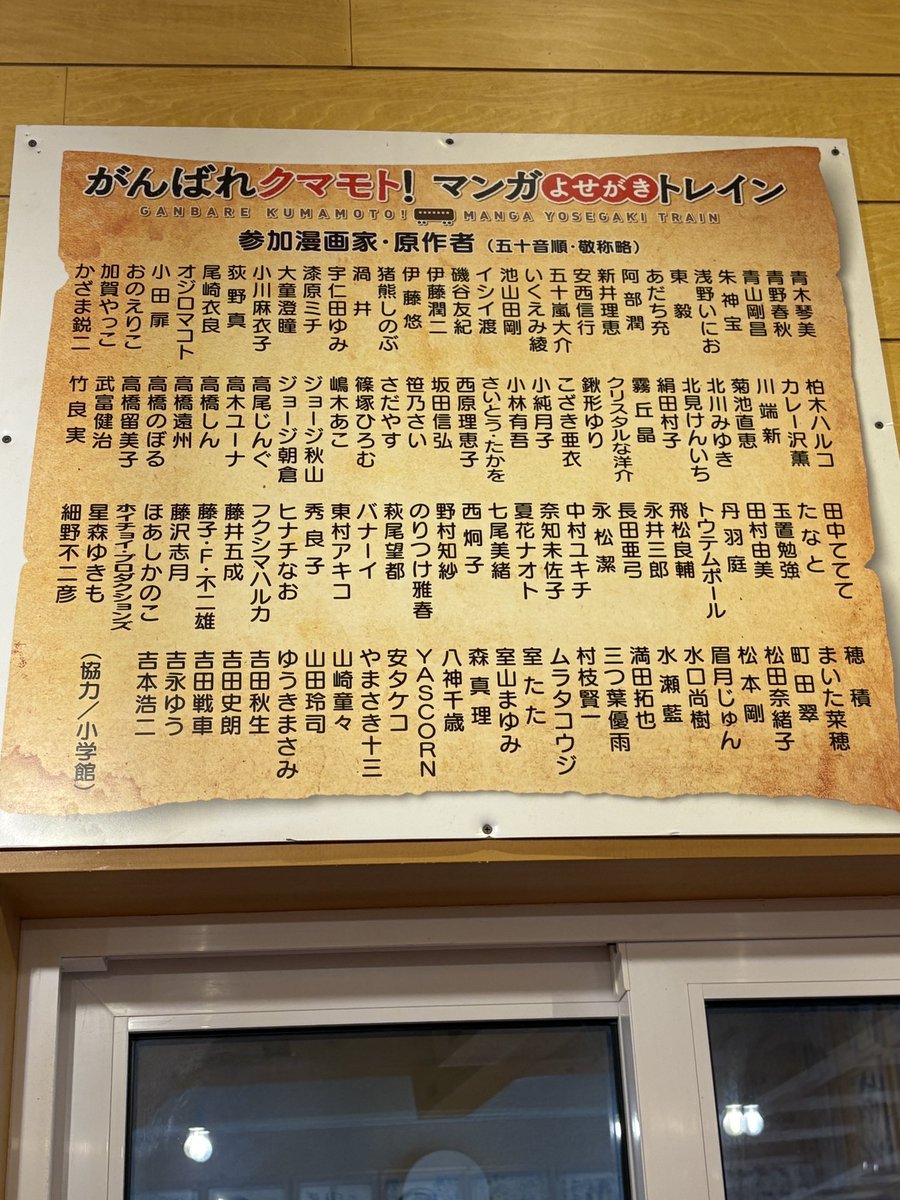 がんばれクマモト！マンガよせがきトレイン
GANBARE KUMAMOTO! MANGA YOSEGAKI TRAIN
参加漫画家・原作者（五十音順・敬称略）
青木琴美
青野春秋
青山剛昌
朱神宝
浅野いにお
東毅
あだち充
阿部潤
新井理恵
安西信行
五十嵐大介
いくえみ綾
池山田剛
イシイ渡
磯谷友紀
伊藤潤二
伊藤悠
猪熊しのぶ
渦井
宇仁田ゆみ
漆原ミチ
大童澄瞳
小川麻衣子
荻野真
尾崎衣良
オジロマコト
小田扉
おのえりこ
加賀やっこ
かざま鋭二
柏木ハルコ
カレー沢薫
川端新
菊池直恵
北川みゆき
北見けんいち
絹田村子
霧丘晶
クリスタルな洋介
鍬形ゆり
こざき亜衣
小純月子
小林有吾
さいとう・たかを
西原理恵子
坂田信弘
笹乃さい
さだやす
篠塚ひろむ
嶋木あこ
ジョージ秋山
ジョージ朝倉
高尾じんぐ
高木ユーナ
高橋しん
高橋遠州
高橋のぼる
高橋留美子
武富健治
竹良実
田中ててて
たなと
玉置勉強
田村由美
丹羽庭
トウテムポール
飛松良輔
永井三郎
長田亜弓
永松潔
中村ユキチ
奈知未佐子
夏花ナオト
七尾美緒
西炯子
野村知紗
のりつけ雅春
萩尾望都
バナーイ
東村アキコ
秀良子
ヒナチなお
フクシマハルカ
藤井五成
藤子・F・不二雄
藤沢志月
ほあしかのこ
ホイチョイ・プロダクションズ
星森ゆきも
細野不二彦
穂積
まいた菜穂
町田翠
松田奈緒子
松本剛
眉月じゅん
水口尚樹
水瀬藍
満田拓也
三つ葉優雨
村枝賢一
ムラタコウジ
室たた
室山まゆみ
森真理
八神千歳
YASCORN
安タケコ
やまさき十三
山崎童々
山田玲司
ゆうきまさみ
吉田秋生
吉田史朗
吉田戦車
吉永ゆう
吉本浩二
（協力／小学館）